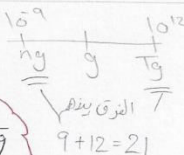 10⁻⁹ 10¹²
ng g Tg
الفرق بينهم
9+12=21